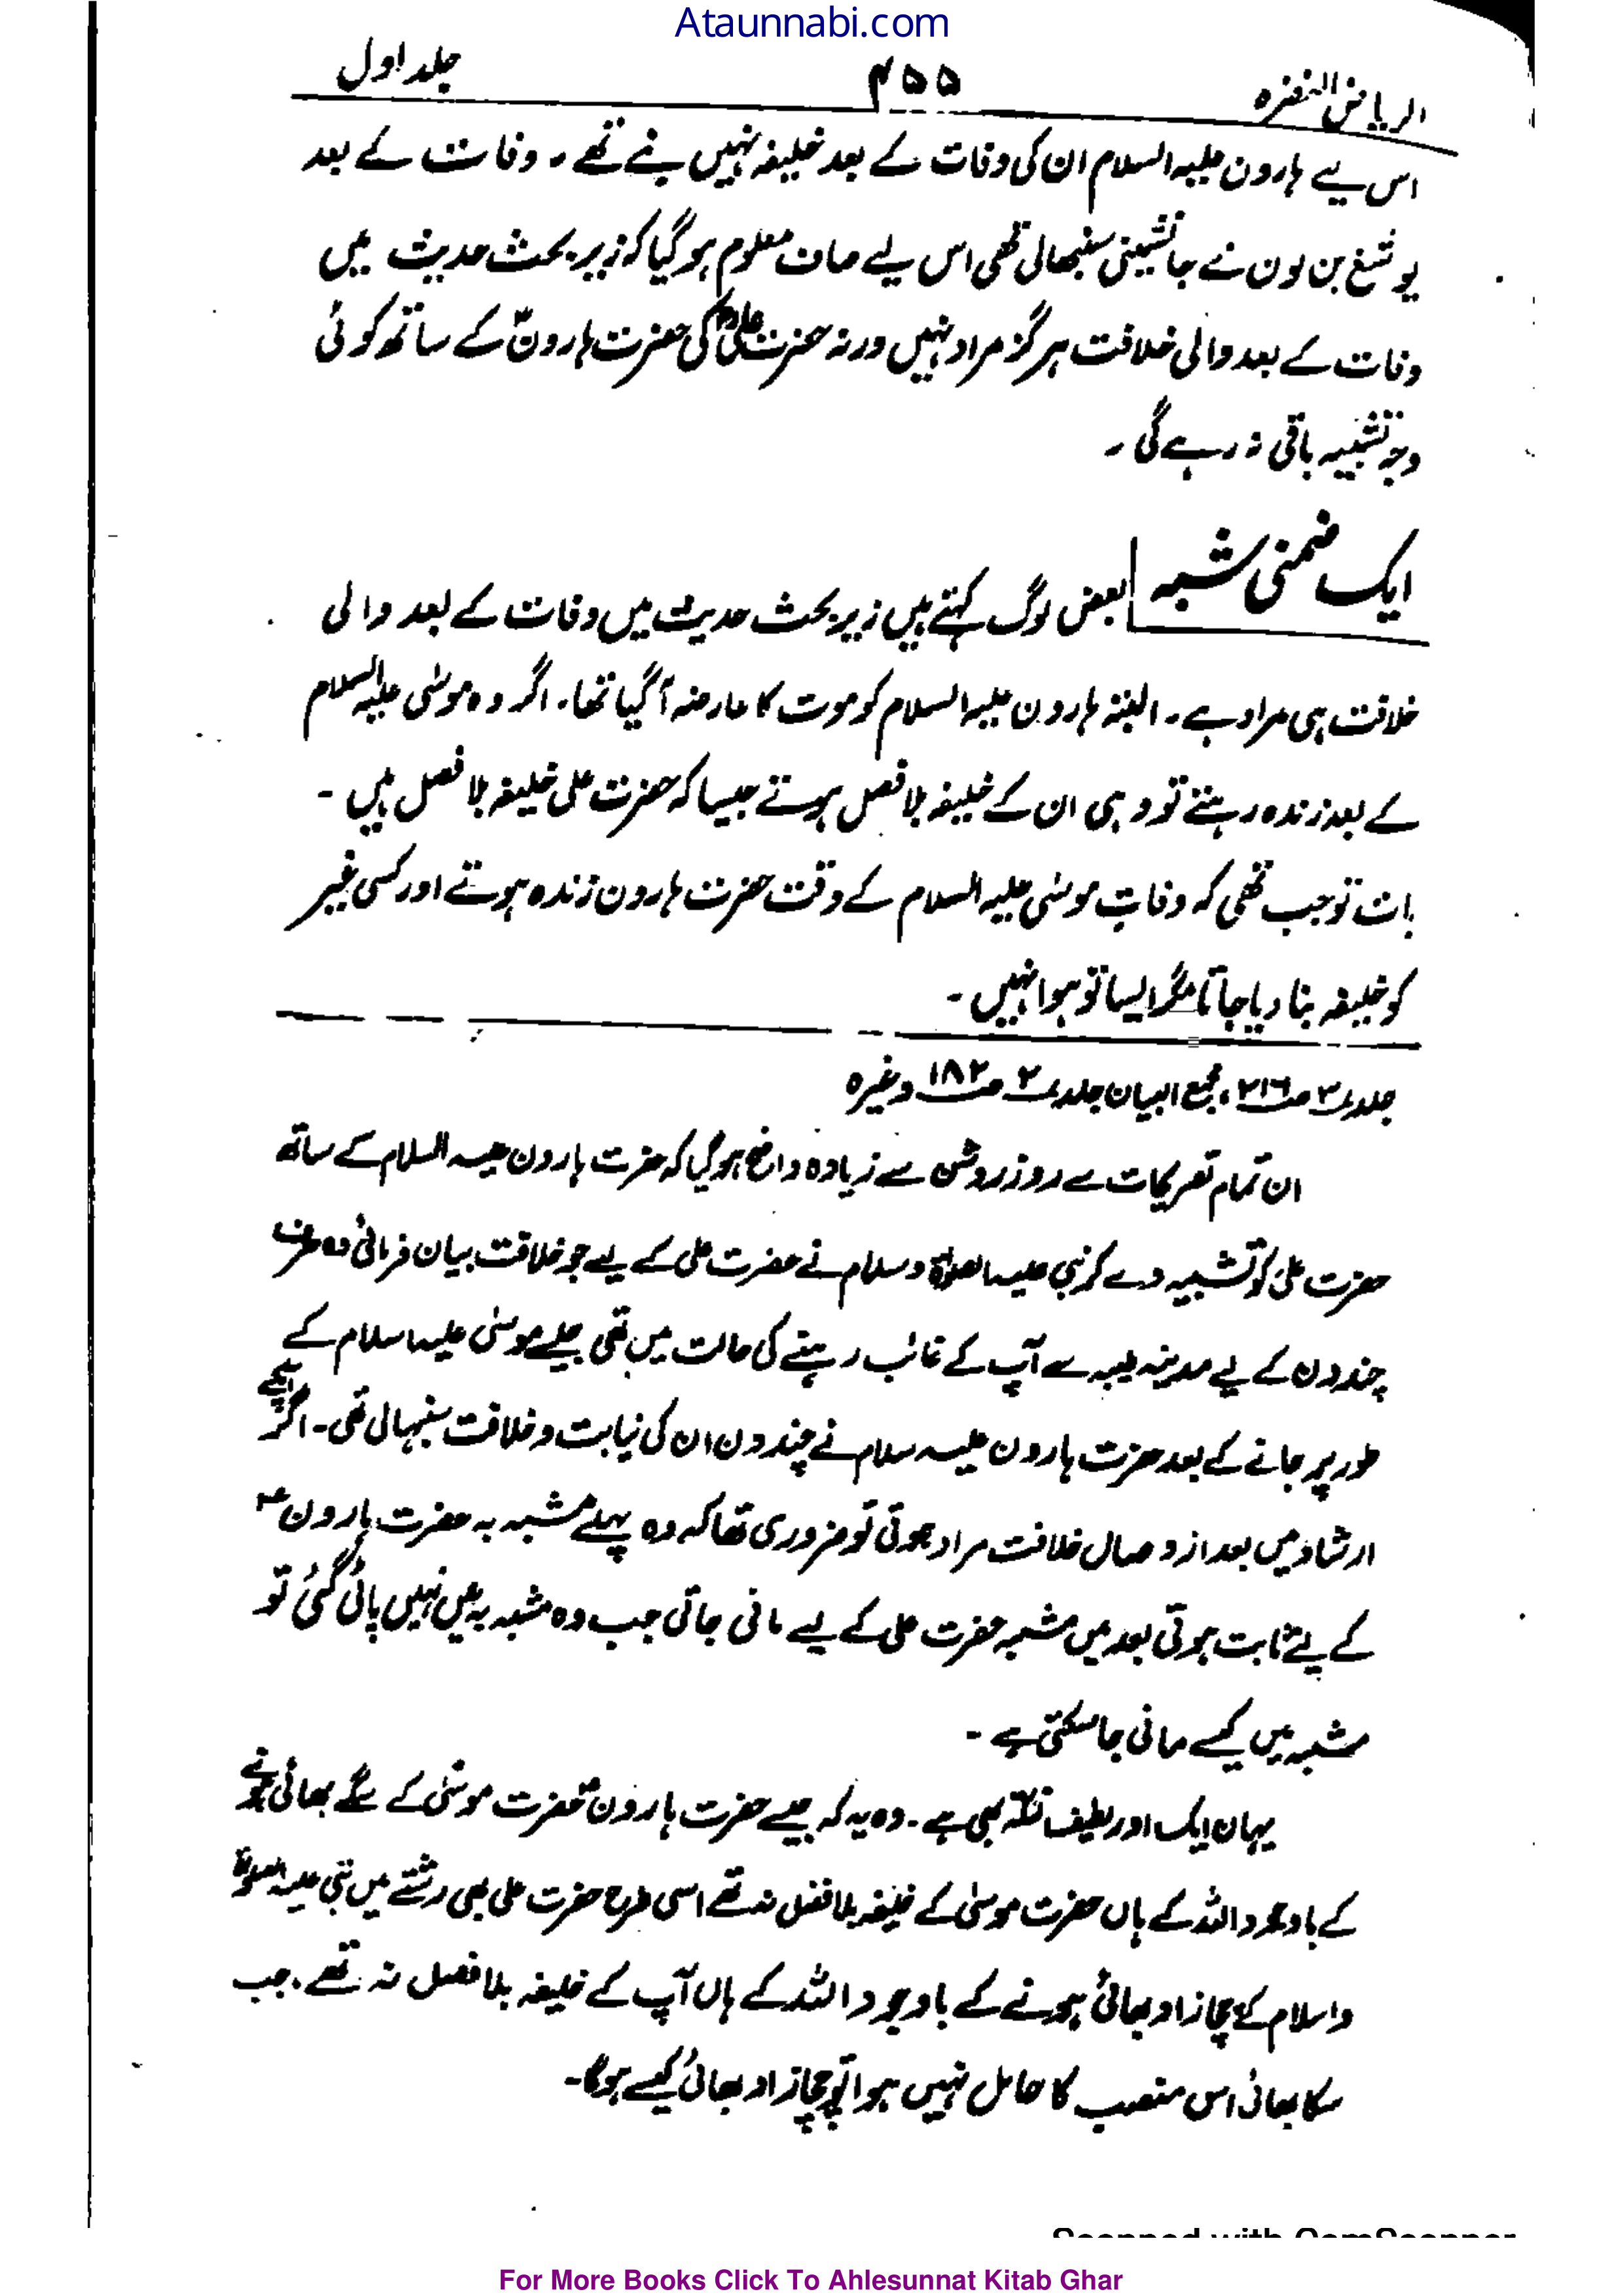 Ataunnabi.com
الریاض النضرہ ۴۵۵ جلد اول
اس لیے ہارون علیہ السلام ان کی وفات کے بعد خلیفہ نہیں بنے تھے۔ وفات کے بعد
یوشع بن نون نے جانشینی سنبھالی تھی اس لیے صاف معلوم ہو گیا کہ زیر بحث حدیث میں
وفات کے بعد والی خلافت ہرگز مراد نہیں ورنہ حضرت علیؓ کی حضرت ہارونؑ کے ساتھ کوئی
وجہ تشبیہ باقی نہ رہے گی۔
ایک ضمنی شبہ
بعض لوگ کہتے ہیں زیر بحث حدیث میں وفات کے بعد والی
خلافت ہی مراد ہے۔ البتہ ہارون علیہ السلام کو موت کا عارضہ آ گیا تھا۔ اگر وہ موسٰی علیہ السلام
کے بعد زندہ رہتے تو وہی ان کے خلیفہ بلا فصل ہوتے جیسا کہ حضرت علی خلیفہ بلا فصل ہیں۔
بات تو جب تھی کہ وفاتِ موسٰی علیہ السلام کے وقت حضرت ہارون زندہ ہوتے اور کسی غیر
کو خلیفہ بنا دیا جاتا مگر ایسا تو ہوا نہیں۔
جلد ۳ ص ۲۱۶، مجمع البیان جلد ۲ ص ۱۸۲ وغیرہ
ان تمام تصریحات سے روز روشن سے زیادہ واضح ہو گیا کہ حضرت ہارون علیہ السلام کے ساتھ
حضرت علی کو تشبیہ دے کر نبی علیہ الصلوٰۃ وسلام نے حضرت علی کے لیے جو خلافت بیان فرمائی وہ صرف
چند دن کے لیے مدینہ طیبہ سے آپ کے غائب رہنے کی حالت میں تھی جیسے موسٰی علیہ السلام کے
طور پر جانے کے بعد حضرت ہارون علیہ سلام نے چند دن ان کی نیابت و خلافت سنبھالی تھی۔ اگر
ارشاد میں بعد از وصال خلافت مراد ہوتی تو ضروری تھا کہ وہ پہلے مشبہ بہ حضرت ہارونؑ
کے لیے ثابت ہوتی بعد میں مشبہ حضرت علی کے لیے مانی جاتی جب وہ مشبہ بہ میں نہیں پائی گئی تو
مشبہ میں کیسے مانی جا سکتی ہے۔
یہاں ایک اور لطیف نکتہ بھی ہے۔ وہ یہ کہ جیسے حضرت ہارونؑ حضرت موسٰی کے سگے بھائی ہونے
کے باوجود اللہ کے ہاں حضرت موسٰی کے خلیفہ بلا فصل نہ تھے اسی طرح حضرت علی بھی رشتے میں نبی علیہ الصلوٰۃ
واسلام کے چچا زاد بھائی ہونے کے باوجود اللہ کے ہاں آپ کے خلیفہ بلا فصل نہ تھے۔ جب
سگا بھائی اس منصب کا حامل نہیں ہوا تو چچا زاد بھائی کیسے ہوگا۔
For More Books Click To Ahlesunnat Kitab Ghar